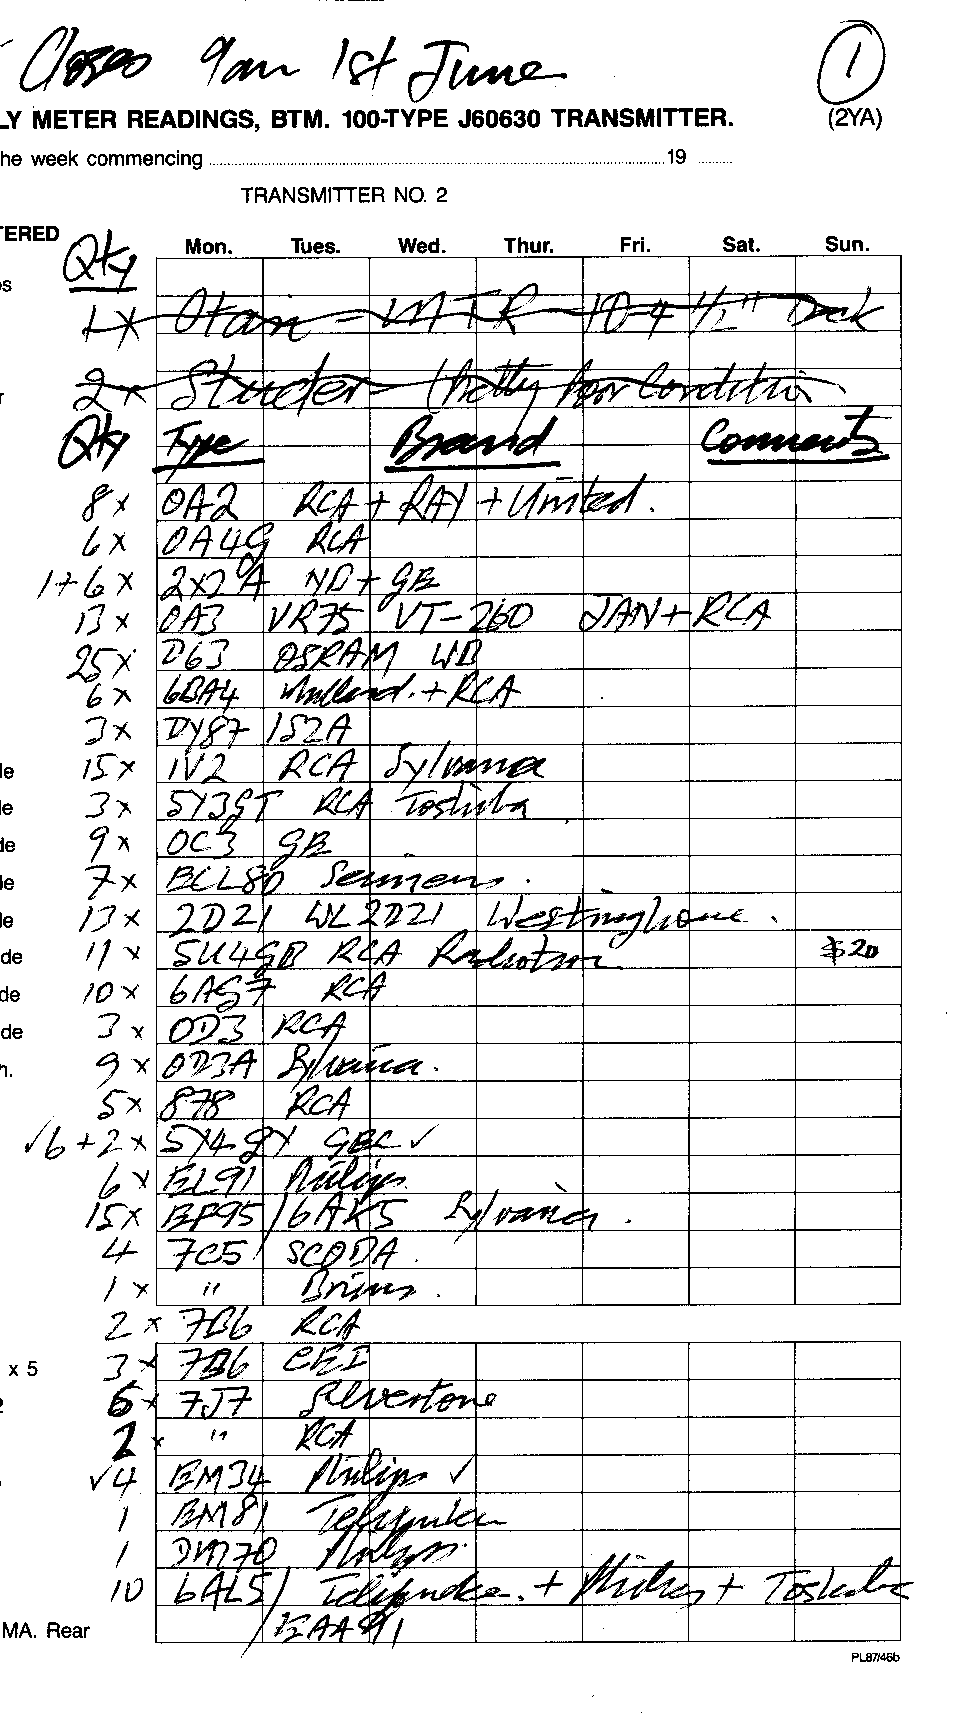 Closes 9am 1st June
1
LY METER READINGS, BTM. 100-TYPE J60630 TRANSMITTER.
(2YA)
he week commencing 19
TRANSMITTER NO. 2
TERED
Qty Mon. Tues. Wed. Thur. Fri. Sat. Sun.
1x Otari - MTR - 10-4 1/2" Deck
2x Studer - (Pretty Poor Condition
Qty Type Brand Comments
8x OA2 RCA + RAY + United.
6x OA4G RCA
1+6x 2X2A ND + GE
13x OA3 VR75 VT-260 JAN + RCA
25x D63 OSRAM WB
6x 6BA4 Mullard. + RCA
3x DY87 1S2A
de 15x 1V2 RCA Sylvania
de 3x 5Y3GT RCA Toshiba
de 9x OC3 GE
de 7x ECL80 Seimens.
de 13x 2D21 WL2D21 Westinghouse.
de 11x 5U4GB RCA Radiotron $20
de 10x 6AG7 RCA
de 3x OD3 RCA
n. 9x OD3A Sylvania.
5x 878 RCA
√6+2x 5Y4GY GEC √
6x EL91 Philips
15x EF95/6AK5 Sylvania.
4 7C5 SCODA.
1x " Brimar.
2x 7B6 RCA
x 5 3x 7B6 CEI
6x 7J7 Silvertone
2x " RCA
√4 EM34 Philips √
1 EM81 Telefunken
1 DM70 Philips.
10 6AL5/ Telefunken. + Philips + Toshiba
MA. Rear /EAA91
PL87/46b